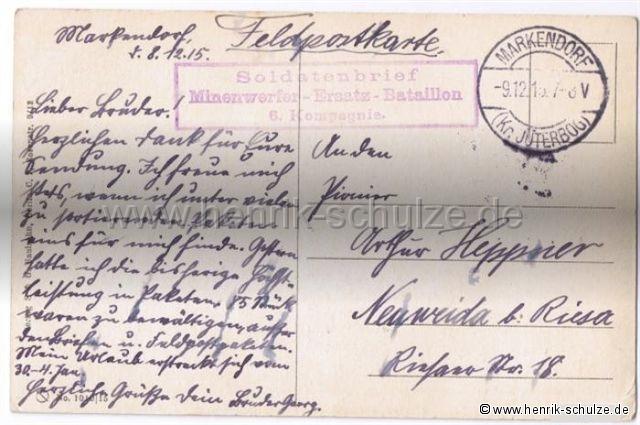 Markendorf,
d. 8.12.15.
Feldpostkarte.
Soldatenbrief
Minenwerfer-Ersatz-Bataillon
6. Kompagnie.
MARKENDORF
-9.12.15.7-8V
(Kr. JÜTERBOG)
Lieber Bruder!
Herzlichen Dank für Eure
Sendung. Ich freue mich
stets, wenn ich unter vielen
zu sortierenden Paketen
eins für mich finde. Gestern
hatte ich die bisherige Höchst-
leistung in Paketen. Stück
waren zu bewältigen, ausser
den Briefen u. Feldpostpaketen.
Mein Urlaub erstreckt sich vom
30.-4. Jan.
Herzliche Grüße Dein Bruder Georg.
An den
Pionier
Arthur Heppner
Neuweida b. Riesa
Riesaer Str. 18.
www.henrik-schulze.de
© www.henrik-schulze.de